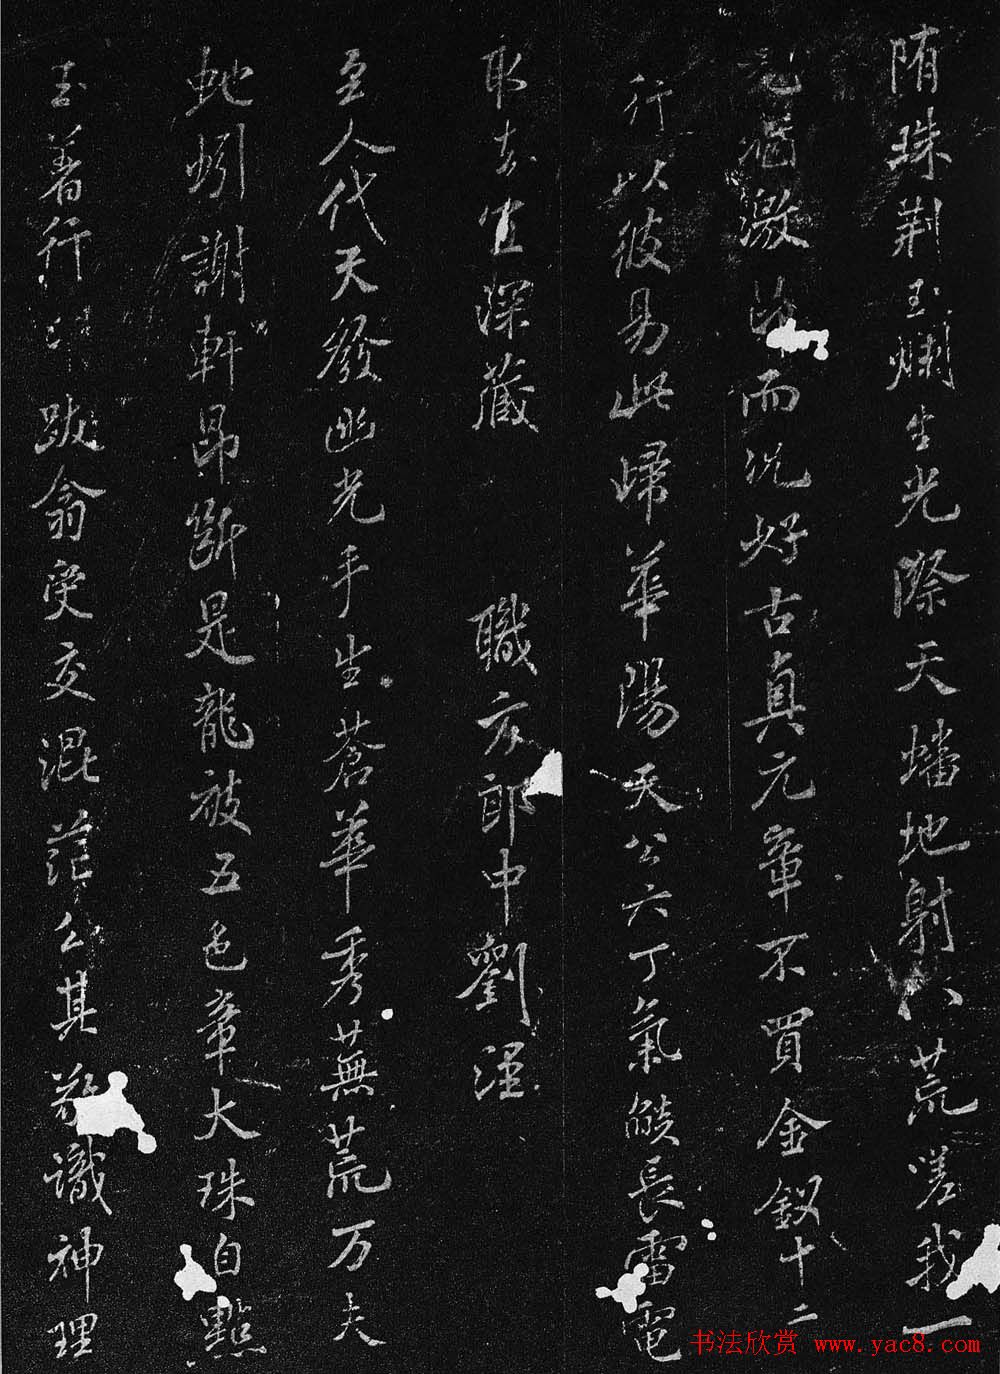 隋珠荆玉爛生光際天蟠地射八荒嗟我一
邀而況好古真元章不買金釵十二
行以彼易此歸華陽天公六丁氣燄長雷電
取去宜深藏　職方郎中劉涇
至人代天發幽光手生蒼華秀蕪荒万夫
蚍蚓謝軒昂斷是龍被五色章大珠自點
玉著行　跋翁受交混茫公其　識神理
书法欣赏 www.yac8.com